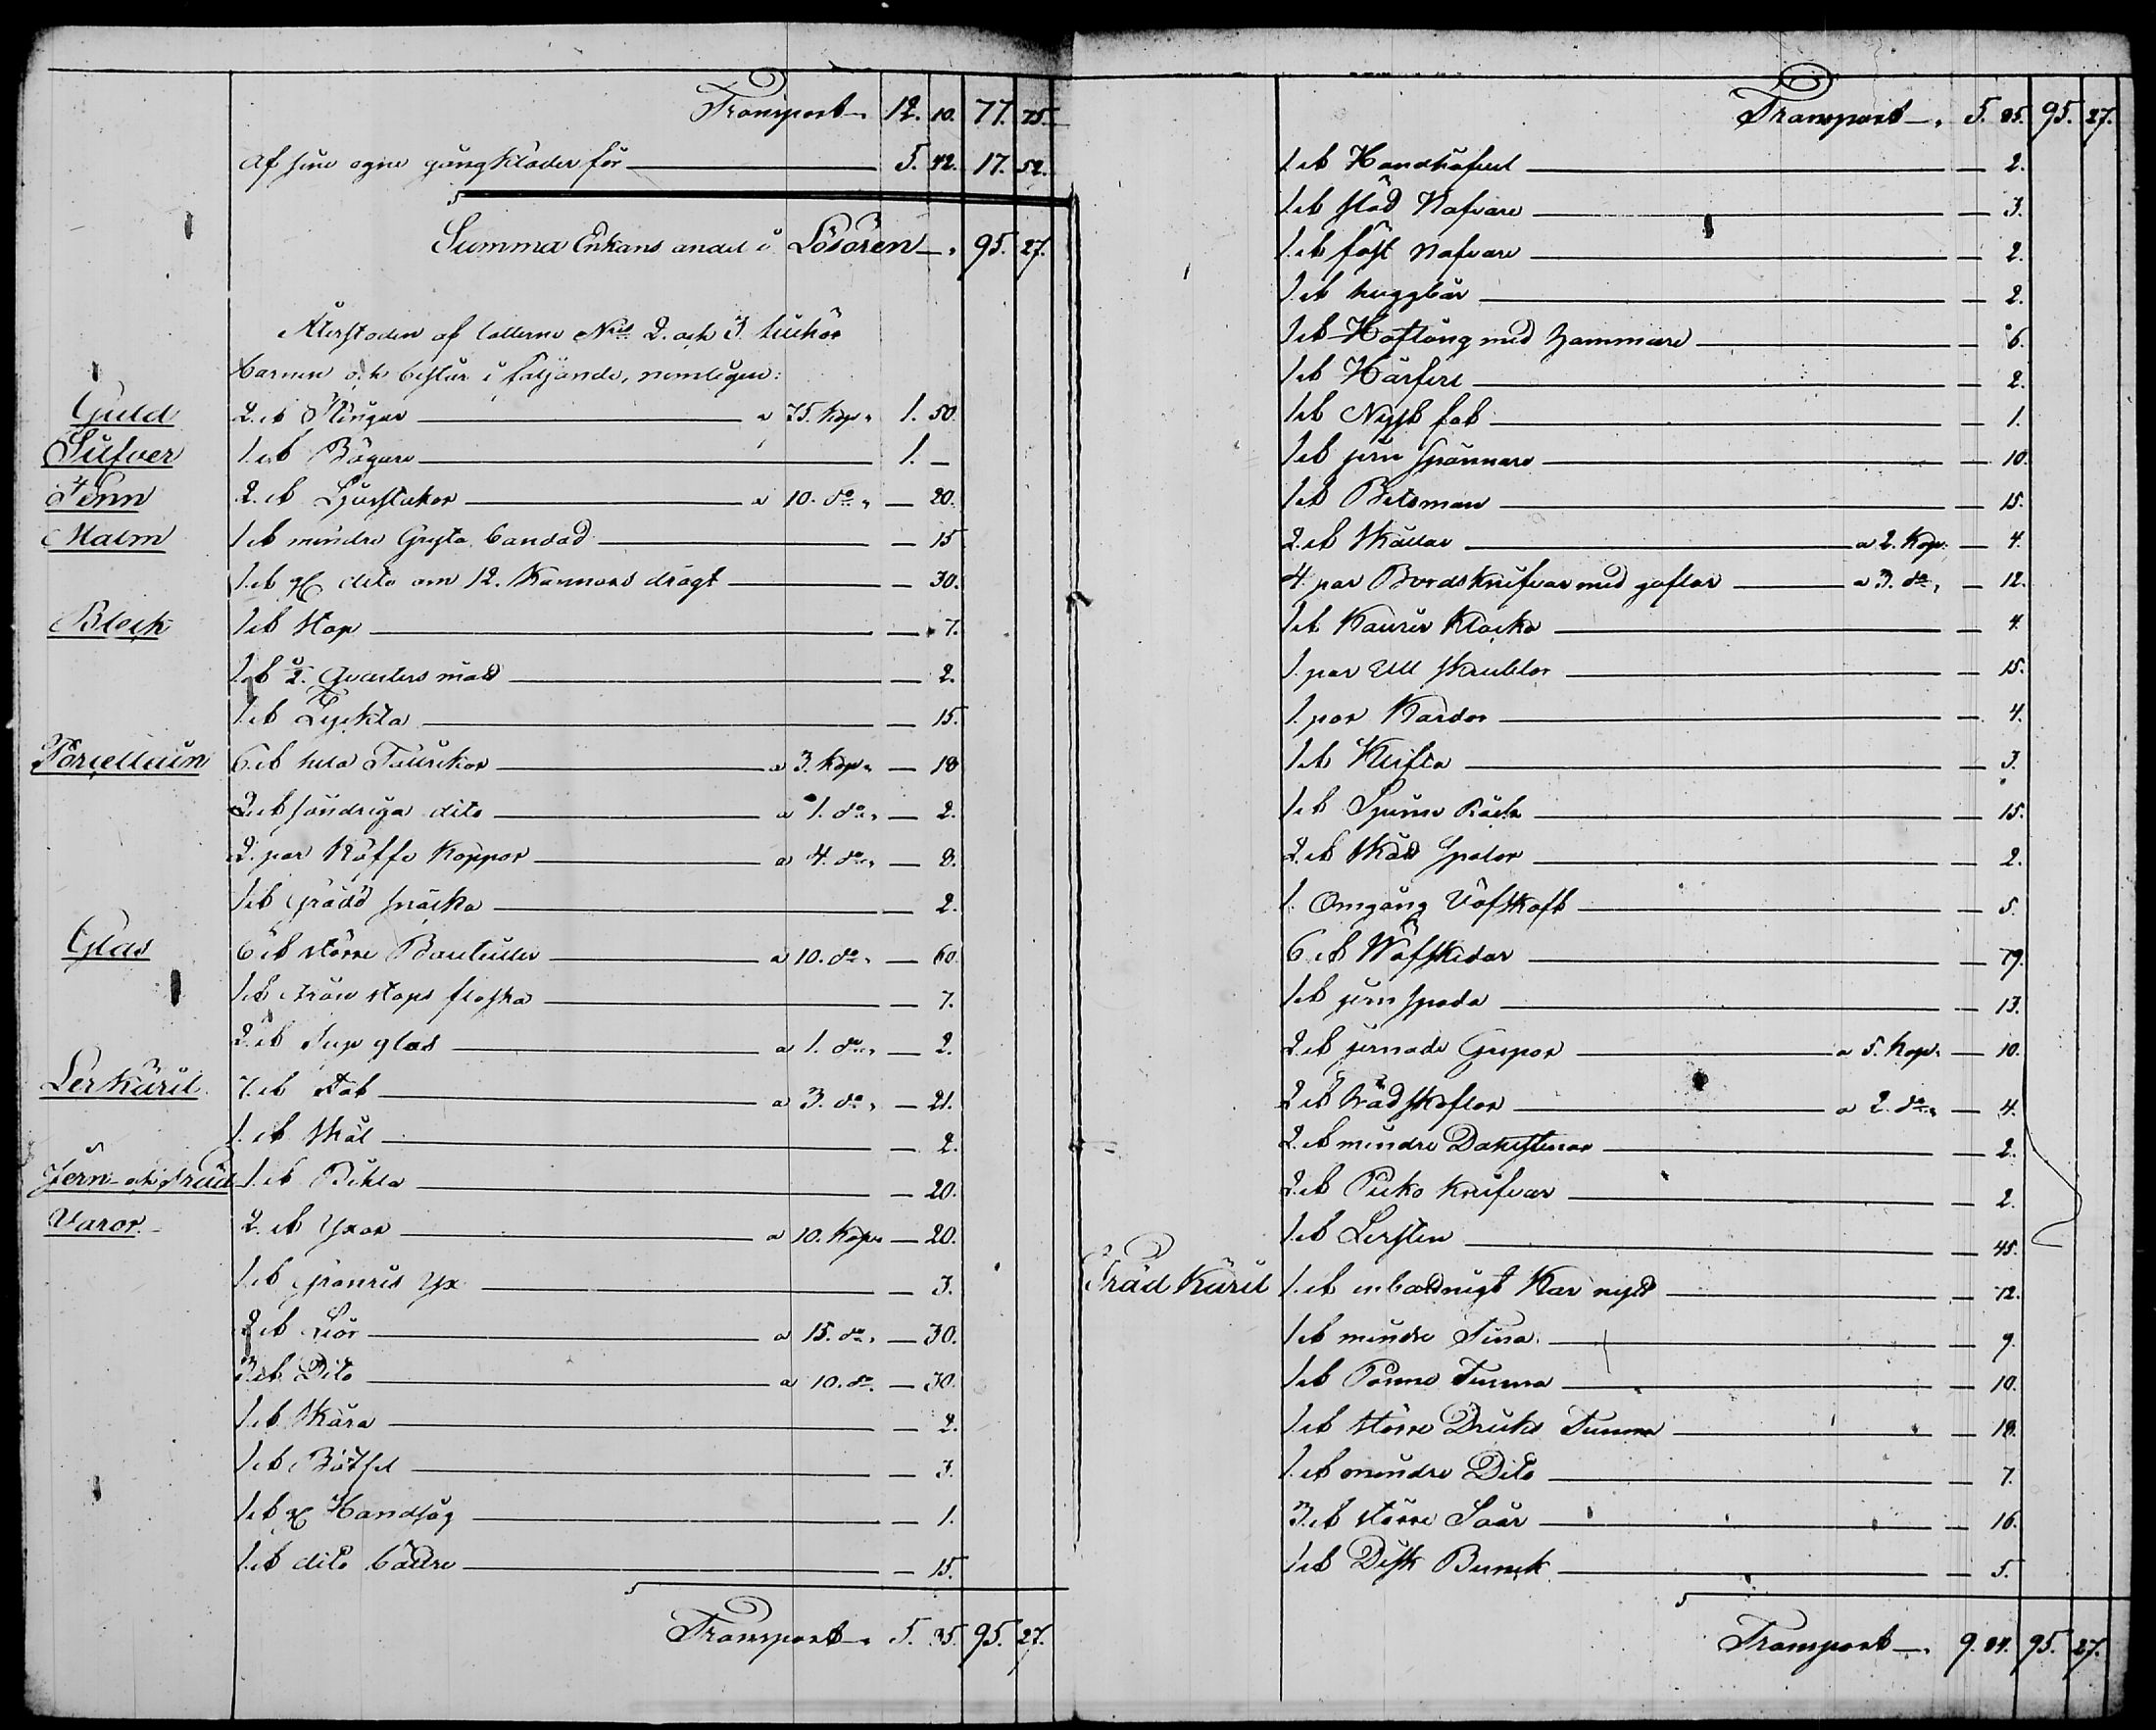 Transport 12. 10. 77. 75.
Af sine egne gångkläder för 5. 42. 17. 52.
Summa Enkans andel i Lösören 95. 27.
Återstoden af lotterne Nris 2. och 3. tillhör
barnen och består i följande, nemligen:
Guld 2. st Ringar a 75. Kop. 1. 50.
Silfver 1. st Bägare 1. —
Tenn 2. st Ljusstakar a 10. do — 20.
Malm 1 st mindre Gryta bandad — 15
1. st dito om 12. Kannors drägt — 30.
Bleck 1 st Stop — 7.
1. st 2. Qvarters mått — 2.
1. st Lyckta — 15.
Porcellain 6. st hela Talrikar a 3. Kop. — 18
2. st söndriga dito a 1. do — 2.
2. par Kaffe Koppar a 4. do — 8.
1 st grädd snäcka — 2.
Glas 6 st större Bouteiller a 10. do — 60.
1 st stops flaska — 7.
2. st Sup glas a 1. do — 2.
Lerkäril 7. st Fat a 3. do — 21.
1. st Skål — 2.
Jern- och träd 1. st Bihla — 20.
Varor. 2. st Yxor a 10. Kop. — 20.
1 st Yx — 3.
2 st Liar a 15. do — 30.
3. st Dito a 10. do — 30.
1. st Skära — 2.
1 st Betsel — 3.
1. st Handsåg — 1.
1. st dito bättre — 15.
Transport 5. 35. 95. 27.
Transport 5. 35. 95. 27.
1. st — 2.
1. st Nafvare — 3.
1. st Nafvare — 2.
1. st — 2.
1 st Hoftång med Hammare — 6.
1 st — 2.
1 st — 1.
1 st jern spännare — 10.
1 st Betsman — 15.
2. st Skällor a 2. Kop. — 4.
4. par Bordsknifvar med gaflar a 3. do — 12.
1 st Klocka — 4.
1. par Ull Skrubblor — 15.
1. par Kardor — 4.
1 st Klifta — 3.
1 st Spinn Råck — 15.
2. st Spolar — 2.
1. Omgång Väfskaft — 5.
6. st Wäfskedar — 79.
1 st jern spada — 13.
2. st jernade Grepar a 5. Kop. — 10.
2 st träd skoflar a 2. do — 4.
2. st mindre — 2.
2. st Knifvar — 2.
1. st — 45.
Träd Käril 1. st Kar nytt — 12.
1 st mindre Tina — 9.
1 st Tunna — 10.
1. st större Dricks Tunna — 18.
1. st mindre Dito — 7.
3. st större Såar — 16.
1 st Disk Bunck — 5.
Transport 9. 84. 95. 27.